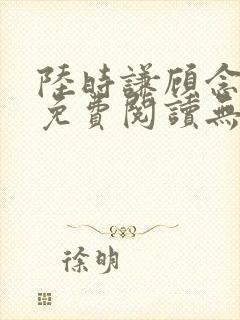 陸時謙顾念
免費閱讀無
徐明